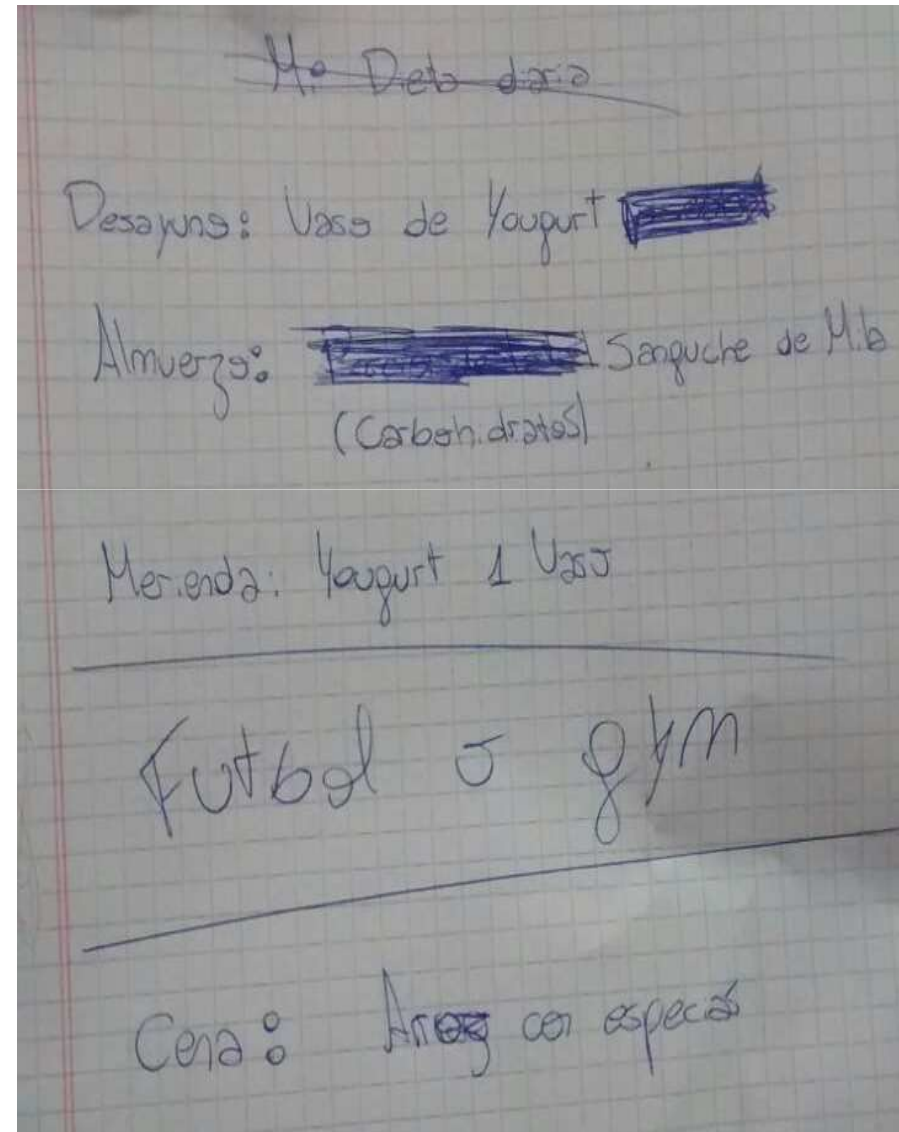 Mi Dieta diaria
Desayuno: Vaso de Yougurt
Almuerzo: Sanguche de Mila
(Carbohidratos)
Merienda: Yougurt 1 Vaso
Futbol o gym
Cena: Arroz con especias